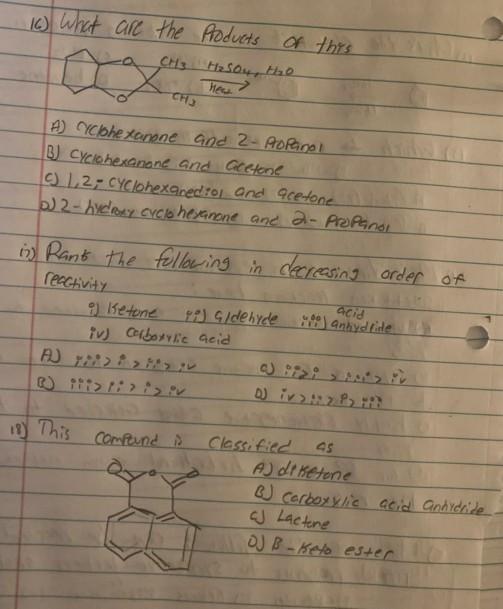 16) What are the Products of this
O CH3 H2SO4, H2O
heat
O CH3
A) cyclohexanone and 2-Propanol
B) cyclohexanone and acetone
C) 1,2-cyclohexanediol and acetone
D) 2-hydroxy cyclohexanone and 2-Propanol
17) Rank the following in decreasing order of
reactivity
i) Ketone ii) aldehyde iii) acid anhydride
iv) carboxylic acid
A) iii > i > ii > iv C) ii > i > iii > iv
B) iii > ii > i > iv D) iv > ii > i > iii
18) This compound is classified as
O O O
A) diketone
B) carboxylic acid anhydride
C) Lactone
D) B-Keto ester